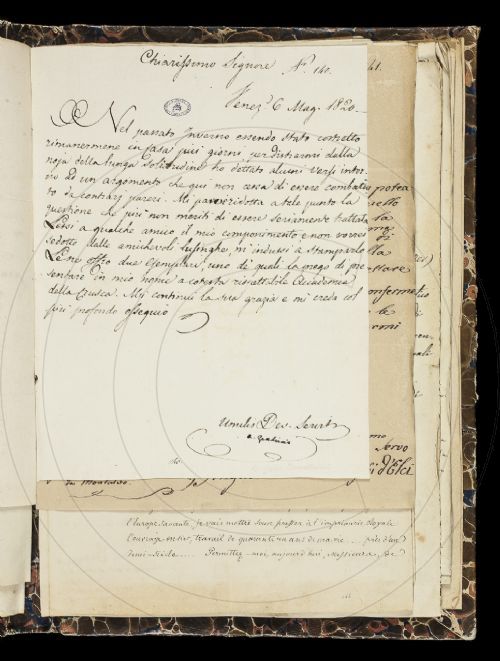 Chiarissimo Signore
N.º 140.
41.
Venez.ª 6 Mag. 1820
Nel passato Inverno essendo stato costretto
rimanermene in casa più giorni per distrarmi della
noja della lunga solitudine ho dettato alcuni versi intor-
no ad un argomento che qui non cessa di essere combattuto
da contrarj pareri. Mi pare ridotta a tale punto la
questione che più non meriti di essere seriamente trattata
Lessi a qualche amico il mio componimento e non vorrei
sedotto dalle amichevoli lusinghe, m'indussi a stamparlo
Le ne offro due esemplari, uno de' quali la prego di pre-
sentare in mio nome a cotesta rispettabile Accademia
della Crusca. Mi continui la sua grazia e mi creda col
più profondo ossequio
Umilis Dev. Servit
Servo
l'Europe savante, je vais mettre sous presse à l'imprimerie Royale
l'ouvrage entier, travail de quarante un ans de ma vie... près d'un
demi-siècle... Permettez-moi, aujourd'hui, Messieurs, de